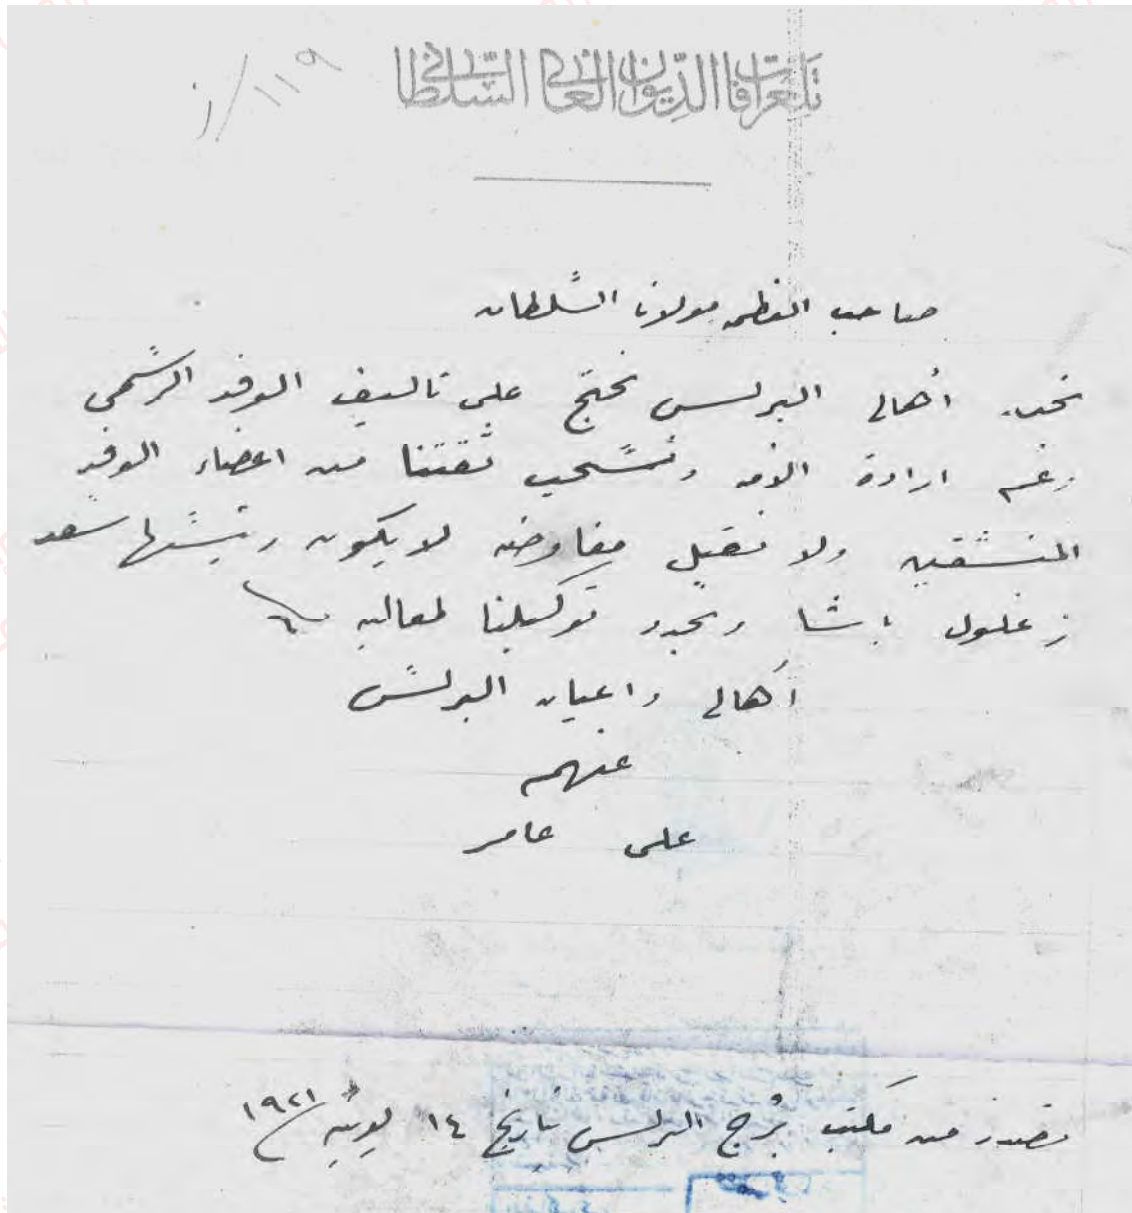 ١١٩/ز
تلغرافات الديوان العالى السلطانى
صاحب العظمه مولانا السلطان
نحن أهالى البرلس نحتج على تاليف الوفد الرسمى
رغم ارادة الامه ونسحب ثقتنا من اعضاء الوفد
المنشقين ولا نقبل مفاوضه لا يكون رئيسها سعد
زغلول باشا ونجدد توكيلنا لمعاليه
أهالى واعيان البرلس
عنهم
على عامر
تصدر من مكتب برج البرلس بتاريخ ١٤ يونيه ١٩٢١